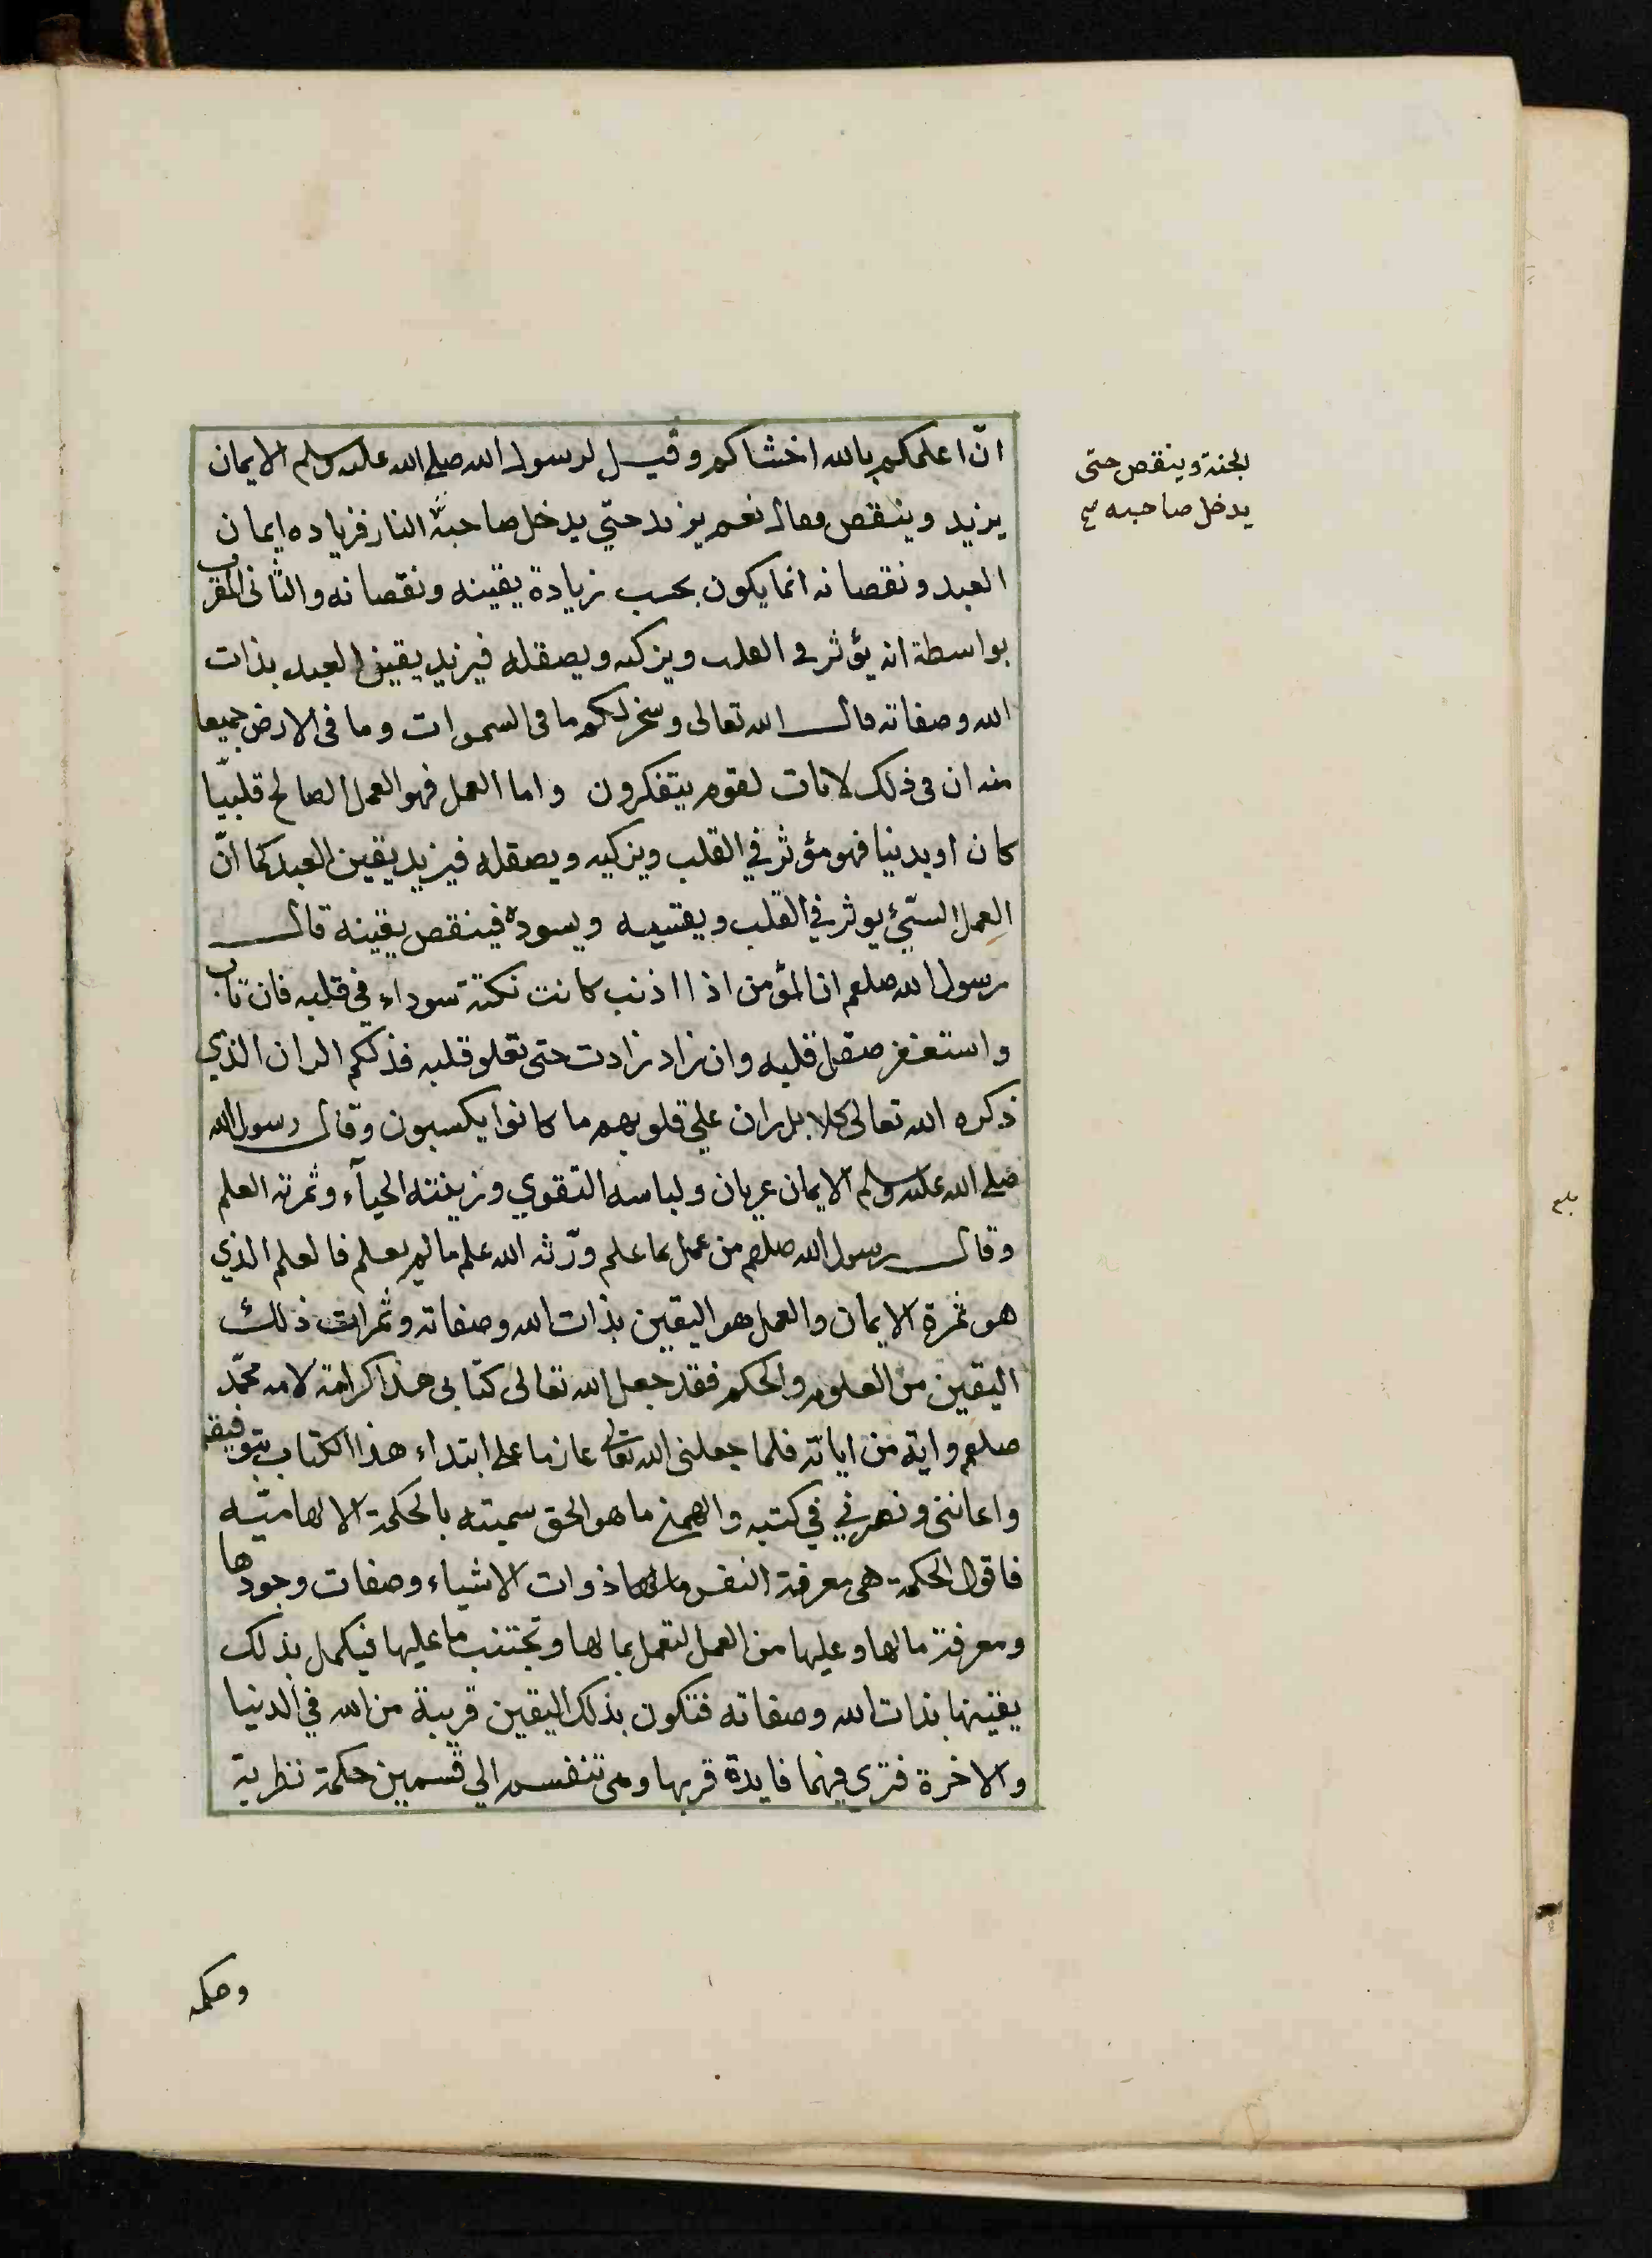 انّ اعلمكم بالله اخشاكم وقيل لرسول الله صلى الله عليه وسلم الايمان
يزيد وينقص فقال نعم يزيد حتي يدخل صاحبه النار فزياده ايمان
العبد ونقصانه انما يكون بحسب زيادة يقينه ونقصانه والثانى المقرب
بواسطة انه يؤثر فى القلب ويزكيه ويصقله فيزيد يقين العبد بذات
الله وصفاته قال الله تعالى وسخر لكم ما فى السموات وما فى الارض جميعا
منه ان فى ذلك لايات لقوم يتفكرون واما العمل فهو العمل الصالح قلبيّا
كان او بدنيا فهو مؤثر في القلب ويزكيه ويصقله فيزيد يقين العبد كما انّ
العمل السّيئ يوثر في القلب ويقسيه ويسوده فينقص يقينه قال
رسول الله صلعم ان المؤمن اذا اذنب كانت نكتة سوداء في قلبه فان تاب
واستغفر صقل قلبه وان زاد زادت حتى تعلو قلبه فذلكم الران الذي
ذكره الله تعالى كلا بل ران علي قلوبهم ما كانوا يكسبون وقال رسول الله
صلى الله عليه وسلم الايمان عريان ولباسه التقوي وزينته الحيآء وثمرته العلم
وقال رسول الله صلعم من عمل بما علم ورّثه الله علم ما لم يعلم فالعلم الذي
هو ثمرة الايمان والعمل هو اليقين بذات الله وصفاته وثمرات ذلك
اليقين من العلوم والحكم فقد جعل الله تعالى كتابى هذا كرامة لامه محمّد
صلعم واية من اياته فلما جعلنى الله تعالى عازما على ابتداء هذا الكتاب بتوفيقه
واعاننى ونصرني في كتبه والهمني ما هو الحق سميته بالحكمة الالهاميّه
فاقول الحكمة هى معرفة النفس مالها ذوات الاشياء وصفات وجودها
ومعرفة ما لها وعليها من العمل لتعمل بما لها وتجتنب ما عليها فيكمل بذلك
يقينها بذات الله وصفاته فتكون بذلك اليقين قريبة من الله في الدنيا
والاخرة فتري فيهما فايدة قربها وهى تنقسم الي قسمين حكمة نظرية
وحكمه
الجنة وينقص حتى
يدخل صاحبه صح